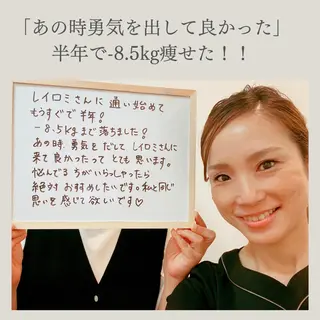 「あの時勇気を出して良かった」
半年で-8.5kg痩せた！！
レイロミさんに 通い始めて
もうすぐで 半年！
-8.5kgまで 落ちました！
あの時、勇気を だして レイロミさんに
来て 良かったって とても 思います。
悩んでる 方が いらっしゃったら
絶対 おすすめしたいです。私と同じ
思いを 感じて 欲しいです♡